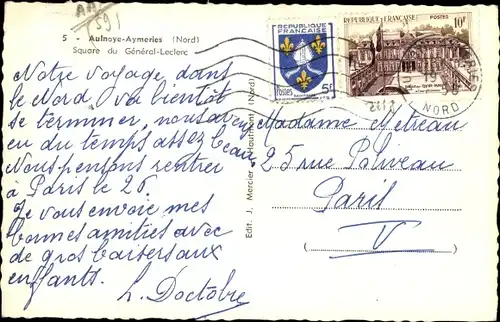 5 - Aulnoye-Aymeries (Nord)
Square du Général-Leclerc
Notre voyage dans
le Nord va bientôt
se terminer, nous avons
eu du temps assez beau,
Nous pensons rentrer
à Paris le 26.
Je vous envoie mes
bonnes amitiés avec
de gros baisers aux
enfants.
L. Doctobre
Edit J. Mercier Hautmont (Nord)
REPUBLIQUE
FRANÇAISE
POSTES 5F
REPUBLIQUE FRANÇAISE
POSTES
10F
19
NORD
Madame Metreau
25 rue Poliveau
Paris
V